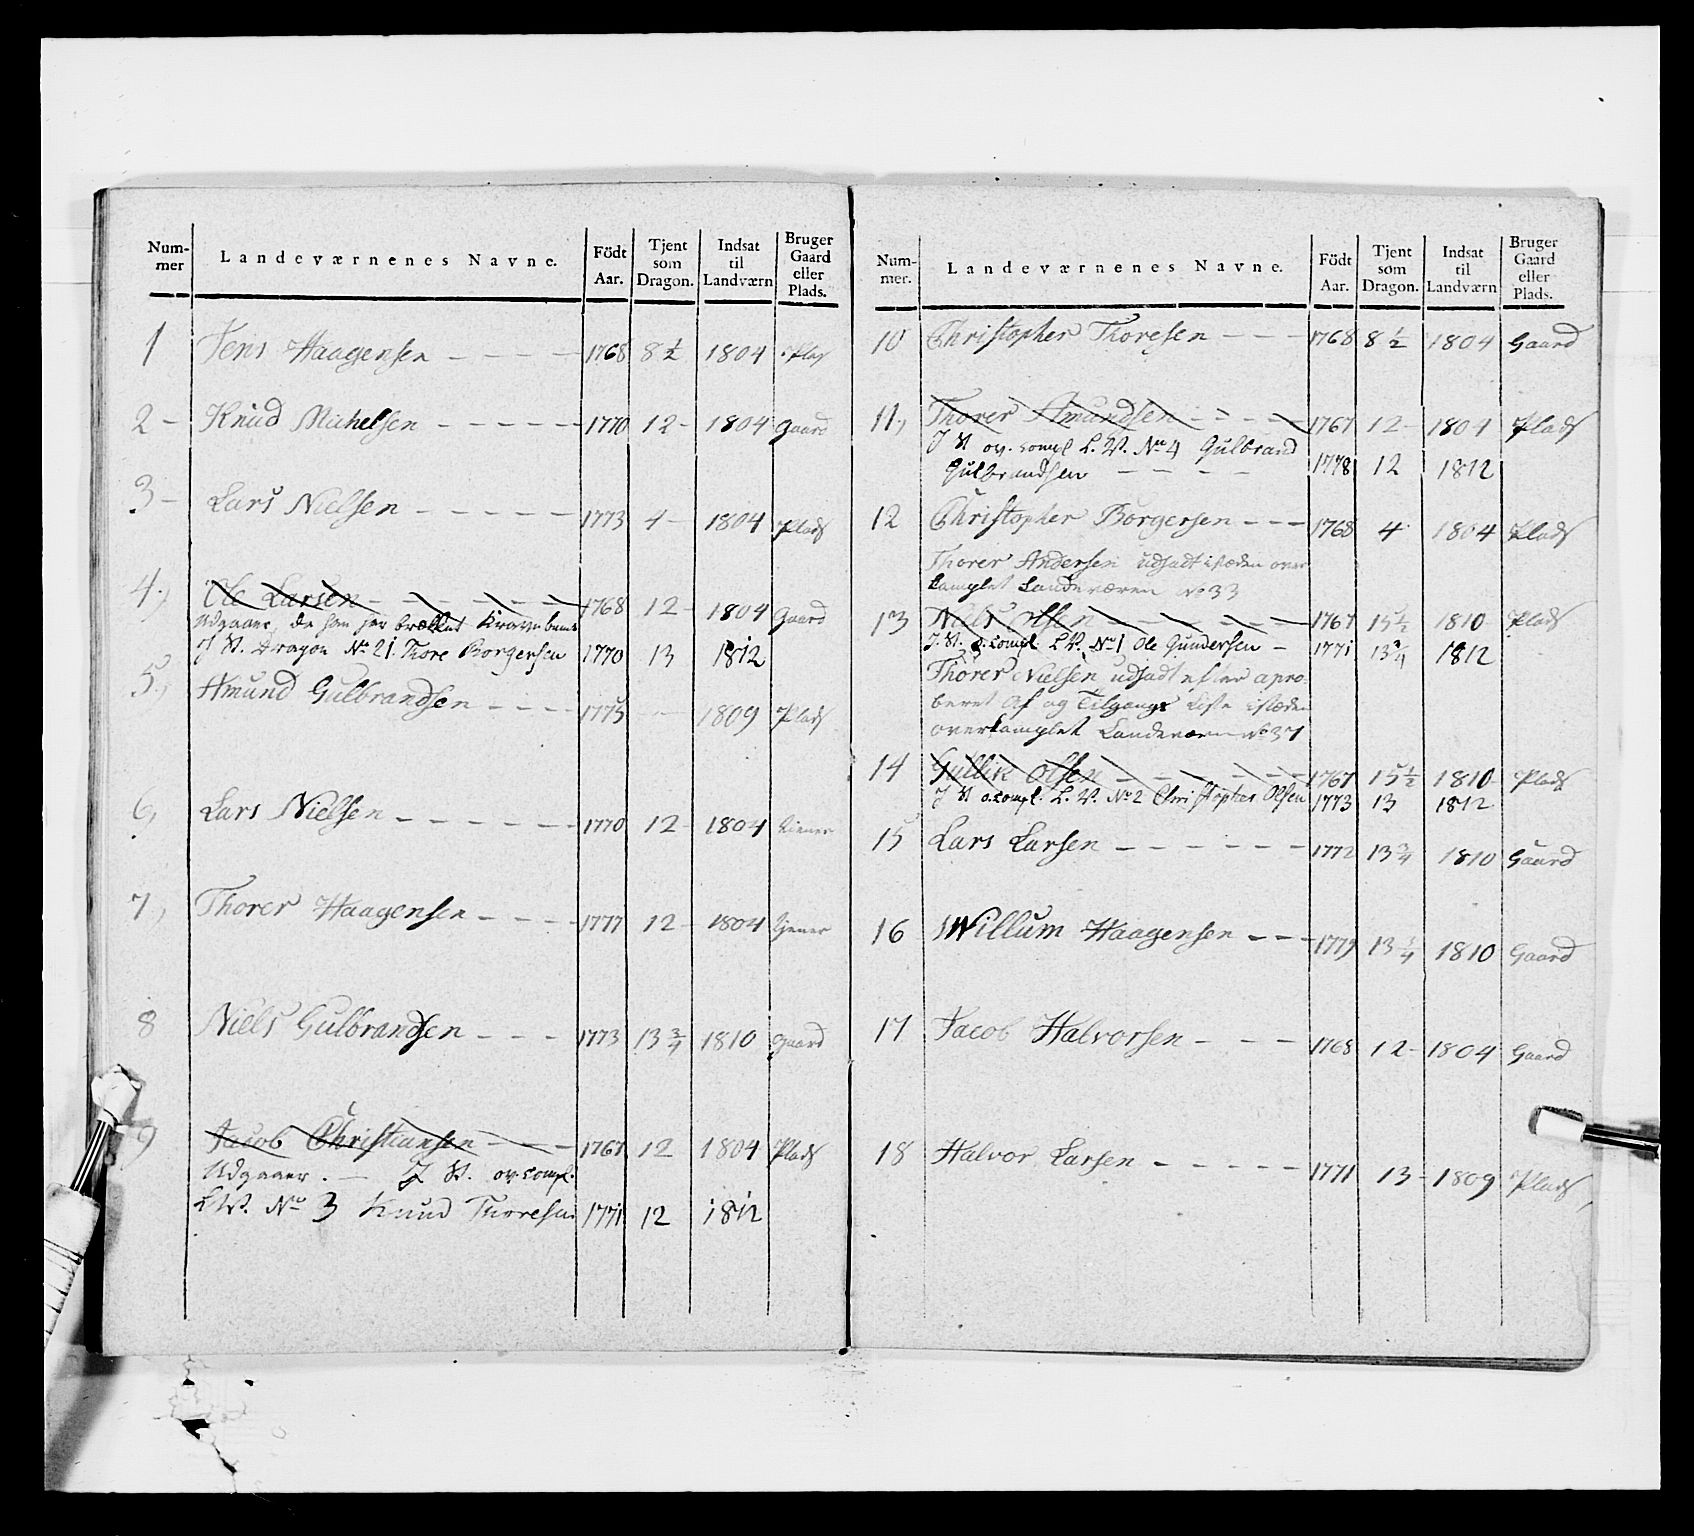 Num- mer Landeværnenes Navne. Födt Aar. Tjent som Dragon. Indsat til Landværn Bruger Gaard eller Plads.
1 Jens Haagensen - - - - 1768 8 1/2 1804 Plas
2 - Knud Michelsen - - - - - 1770 12 - 1804 Gaard
3 - Lars Nielsen - - - - - 1773 4 - 1804 Plads
4, Ole Larsen - - - - - 1768 12 - 1804 Gaard
Udgaaer, da han har brækket Kravebenet
J St. Dragon No 21. Thore Borgersen 1770 13 1812
5, Amund Gulbrandsen - - - - 1775 - 1809 Plads
6, Lars Nielsen - - - - - - 1770 12 - 1804 tiener
7, Thorer Haagensen - - - - 1777 12 - 1804 tjener
8 Niels Gulbrandsen - - - 1773 13 3/4 1810 Gaard
9 Jacob Christiansen - - - 1767 12 1804 Plads
Udgaaer. - J St. ov. compl.
L W. No 3 Knud Thoresen 1771 12 1812
Num- mer. Landeværnenes Navne. Födt Aar. Tjent som Dragon. Indsat til Landværn Bruger Gaard eller Plads.
10 Christopher Thoresen - - - 1768 8 1/2 1804 Gaard
11, Thorer Amundsen - - - - 1767 12 - 1804 Plads
J St ov. compl L. V. No 4 Gulbrand
Gulbrandsen - - - - 1778 12 1812
12 Christopher Borgersen - - - 1768 4 1804 Plads
Thorer Andersen udsadt isteden over
Complet Landeværen No 33
13 Niels Olsen - - - - - - 1767 15 1/2 1810 Plads
J St. o. compl. L V. No 1 Ole Gundersen - 1771 13 3/4 1812
Thorer Nielsen udsadt efter apro-
beret Af og Tilgangs Liste isteden
overkomplet Landeværn No 37
14 Gullik Olsen - - - - - - 1767 15 1/2 1810 Plads
J St o. compl. L. V. No 2 Christopher Olsen 1773 13 1812
15 Lars Larsen - - - - - - 1772 13 3/4 1810 Gaard
16 Willum Haagensen - - - 1779 13 3/4 1810 Gaard
17 Jacob Halvorsen - - - 1768 12 - 1804 Gaard
18 Halvor Larsen - - - - - 1771 13 - 1809 Plads